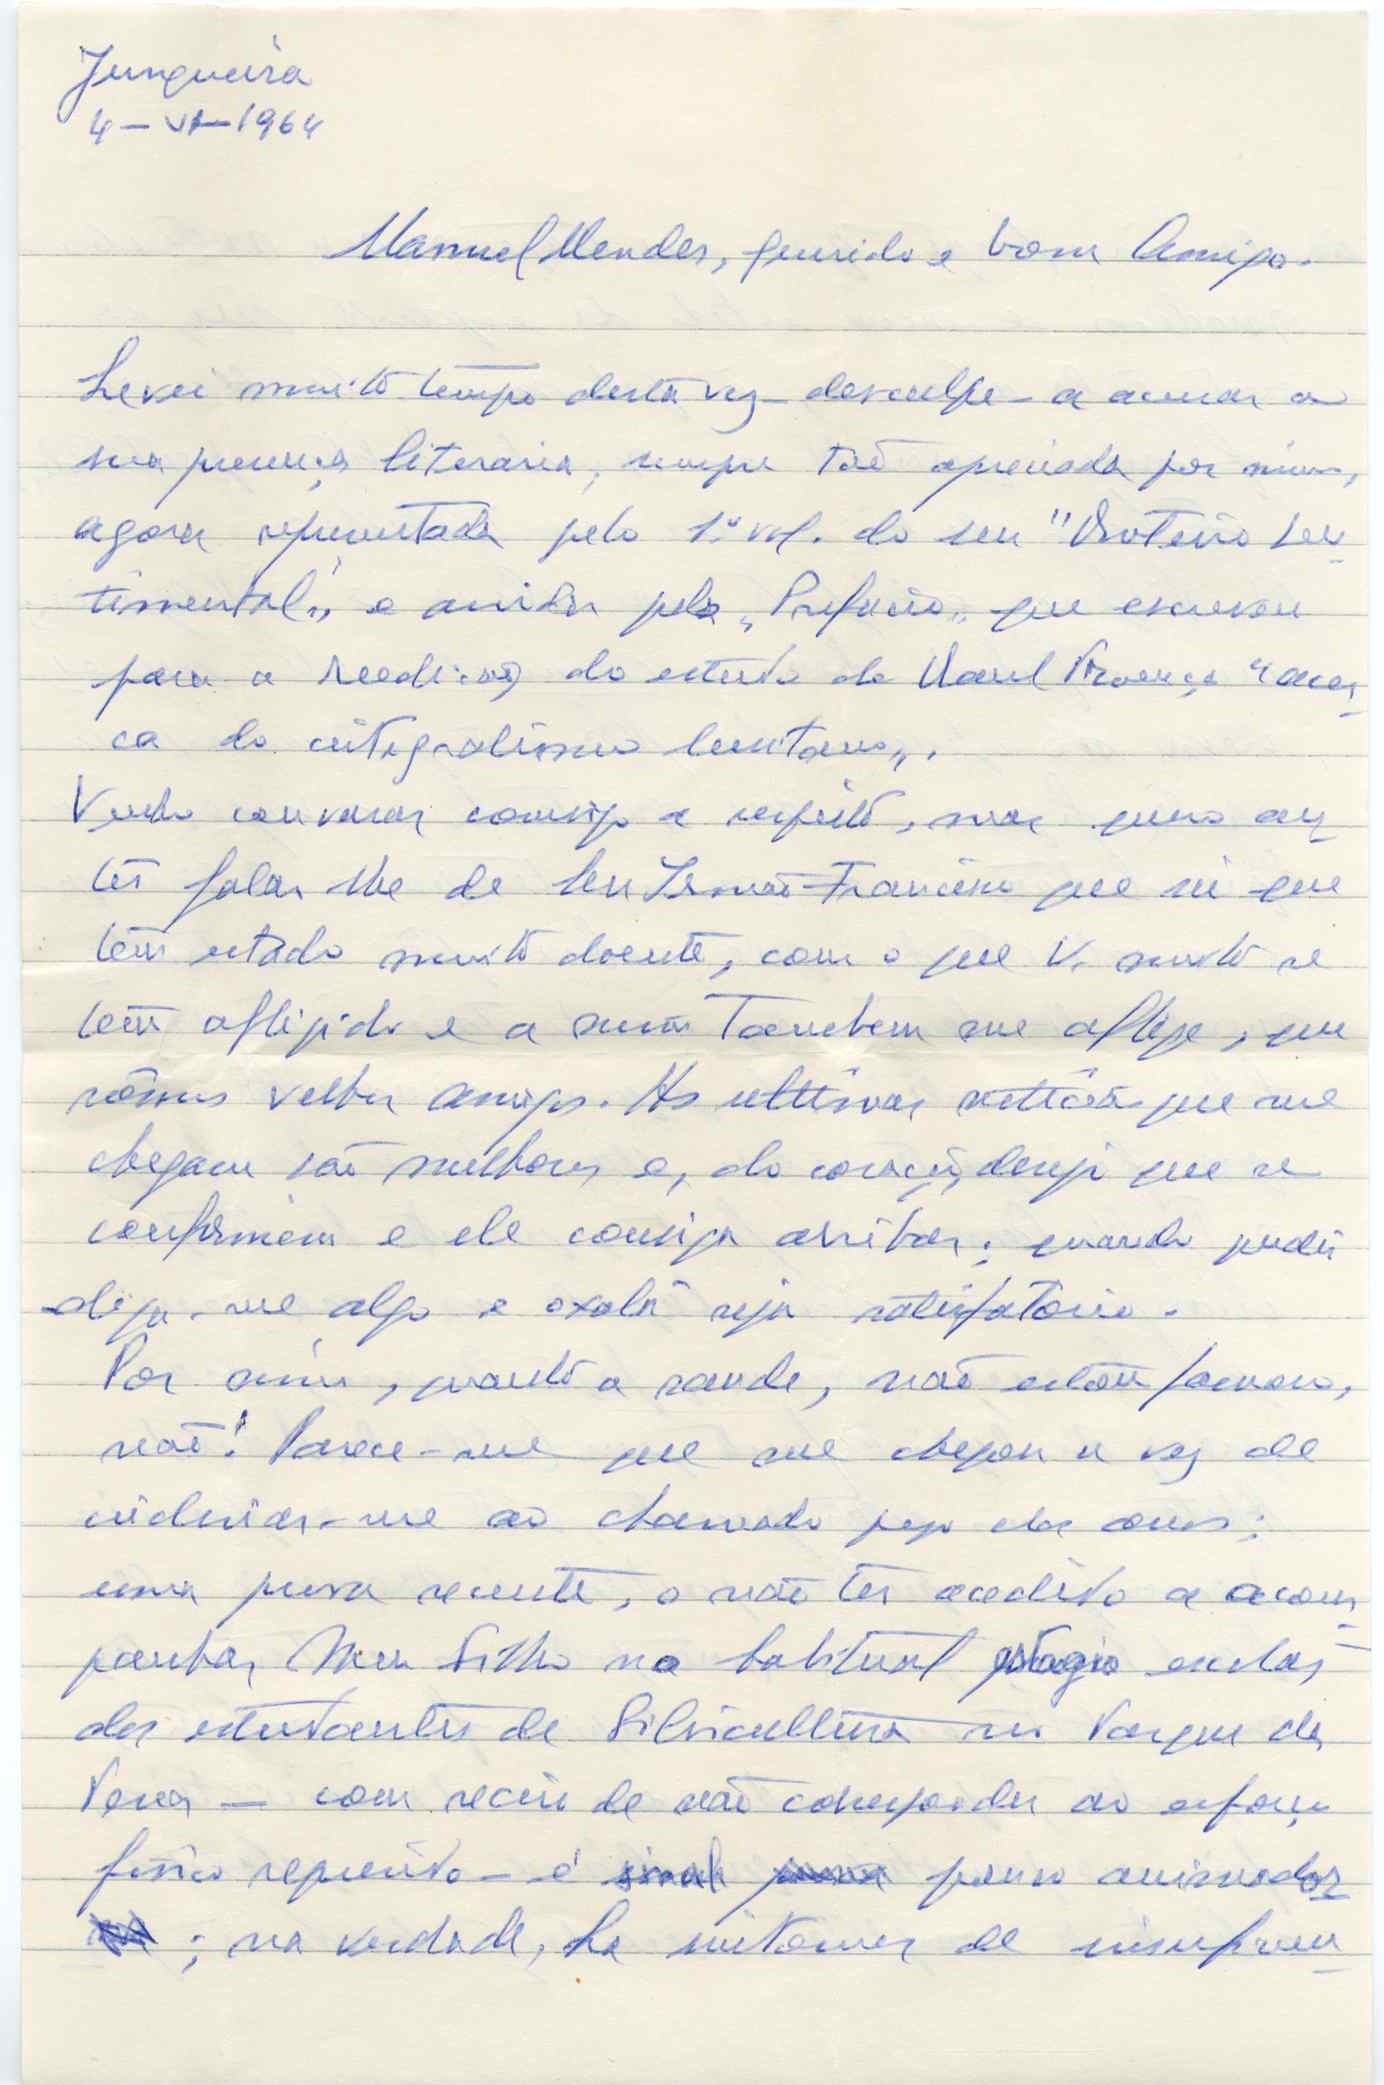 Junqueira
4-VI-1964
Manuel Mendes, querido e bom Amigo.
Levei muito tempo desta vez - desculpe - a acusar a
sua presença literaria, sempre tão apreciada por mim,
agora representada pelo 1º vol. do seu "Roteiro Sen
timental", e ainda pelo "Prefacio" que escreveu
para a reedição do estudo de Raul Proença "acer
ca do integralismo lusitano".
Venho conversar consigo a respeito, mas quero an
tes falar-lhe de Seu Irmão Francisco que sei que
tem estado muito doente, com o que V. muito se
tem afligido e a mim tambem me aflige, que
sômos velhos amigos. As ultimas noticias que me
chegam são melhores e, do coração, desejo que se
confirmem e ele consiga arribar; quando puder
diga-me algo e oxalá seja satisfatorio.
Por mim, quanto a saude, não estou famoso,
não! Parece-me que me chegou a vez de
evidenciar-me ao chamado peso dos anos;
uma prova recente, o não ter acedido a acom
panhar Meu Filho no habitual estagio escolar
dos estudantes de Silvicultura no Parque da
Pena — com receio de não corresponder ao esforço
fisico requerido - é sinal pouco animador
; na verdade, ha sintomas de insuficien